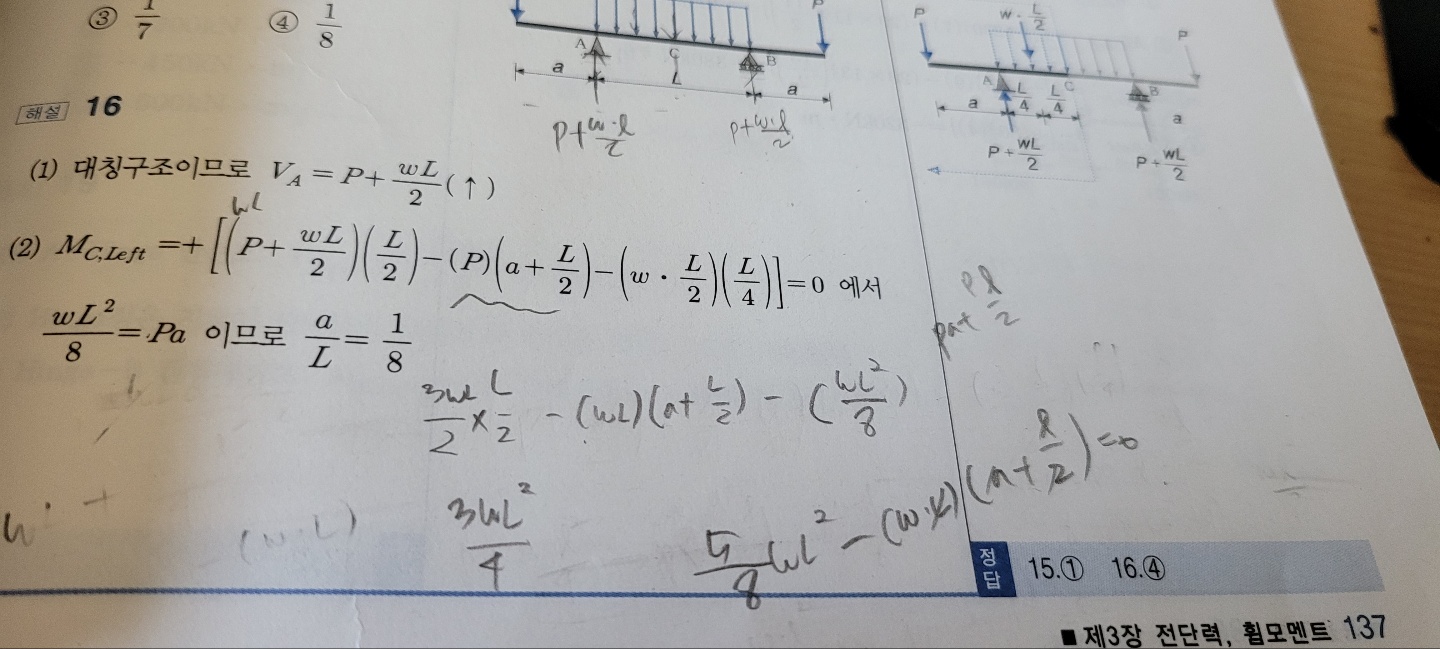 ③ 1/7 ④ 1/8
P
A C B
a L a
P+w·l/2 P+w·l/2
P w·L/2 P
A L/4 L/4 C B
a a
P+wL/2 P+wL/2
해설 16
(1) 대칭구조이므로 V_A = P + wL/2 (↑)
wL
(2) M_C,Left = + [(P + wL/2)(L/2) − (P)(a + L/2) − (w · L/2)(L/4)] = 0 에서
wL²/8 = Pa 이므로 a/L = 1/8
Pa+ Pl/2
3wL/2 × L/2 − (wL)(a+L/2) − (wL²/8)
(w·L)
3wL²/4
5/8 wL² − (w·l)(a+l/2)=0
정답 15.① 16.④
■ 제3장 전단력, 휨모멘트 137